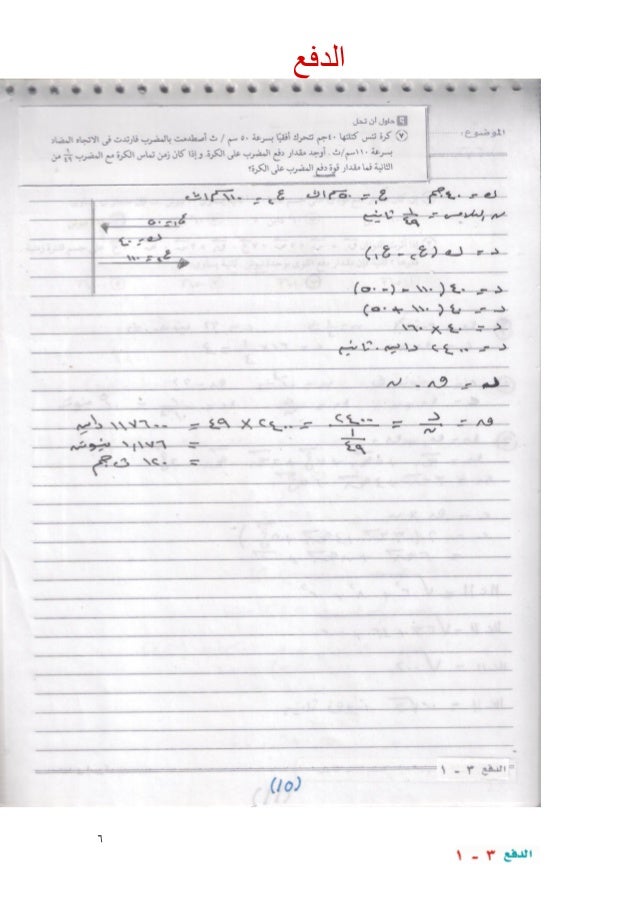 الدفع
الموضوع:
حاول أن تحل
٧ كرة تنس كتلتها ٤٠جم تتحرك أفقيا بسرعة ٥٠ سم / ث أصطدمت بالمضرب فارتدت فى الاتجاه المضاد
بسرعة ١١٠سم/ث . أوجد مقدار دفع المضرب على الكرة. وإذا كان زمن تماس الكرة مع المضرب ١/٤٩ من
الثانية فما مقدار قوة دفع المضرب على الكرة؟
ك = ٤٠ جم ع١ = ٥٠ سم/ث ع٢ = ١١٠ سم/ث
ن التلامس = ١/٤٩ ثانية
ع١ = ٥٠
ك = ٤٠
ع٢ = ١١٠
د = ك (ع٢ - ع١)
د = ٤٠ (١١٠ - (-٥٠))
د = ٤٠ (١١٠ + ٥٠)
د = ٤٠ × ١٦٠
د = ٢٤٠٠ داين . ثانية
د = ق . ن
ق = د/ن = ٢٤٠٠/(١/٤٩) = ٢٤٠٠ × ٤٩ = ١١٧٦٠٠ داين
= ١,١٧٦ نيوتن
= ١٢٠ ث.جم
الدفع ٣ - ١
(١٥)
٦
الدفع ٣ - ١